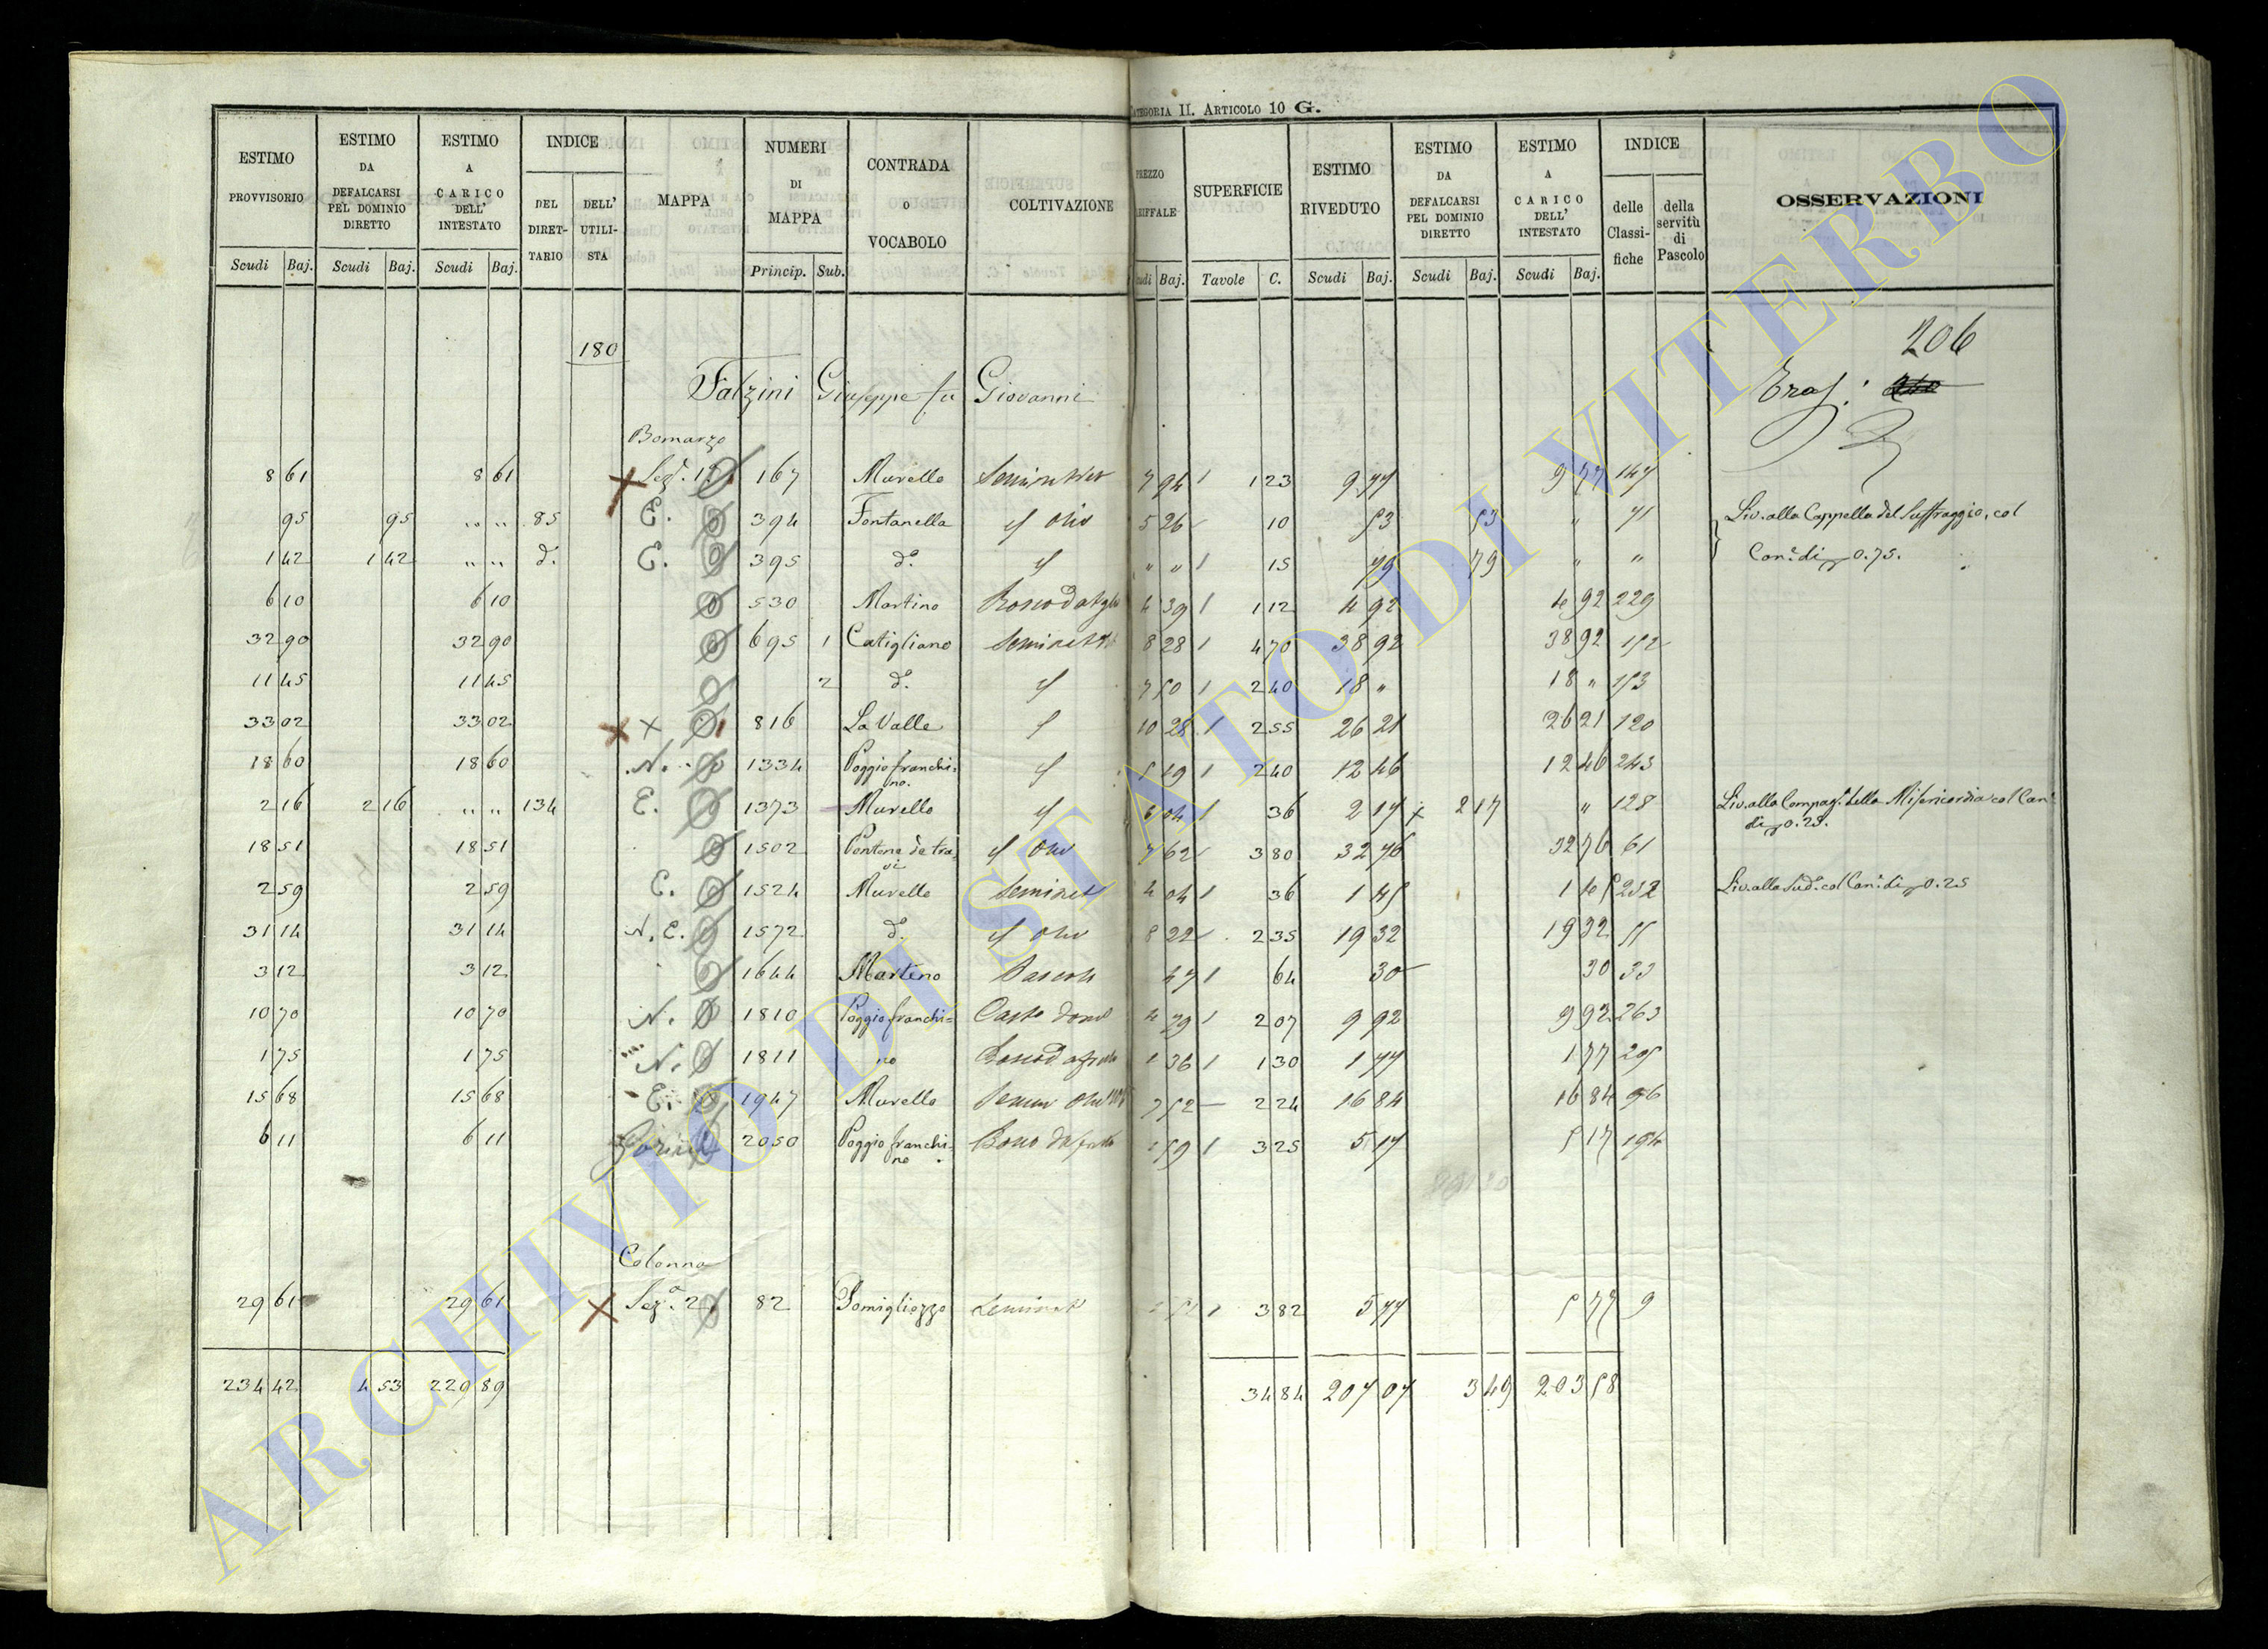 CATEGORIA II. ARTICOLO 10 G.
ESTIMO PROVVISORIO Scudi Baj.
ESTIMO DA DEFALCARSI PEL DOMINIO DIRETTO Scudi Baj.
ESTIMO A CARICO DELL' INTESTATO Scudi Baj.
INDICE DEL DIRET-TARIO DELL' UTILI-STA
MAPPA
NUMERI DI MAPPA Princip. Sub.
CONTRADA O VOCABOLO
COLTIVAZIONE
PREZZO TARIFFALE Scudi Baj.
SUPERFICIE Tavole C.
ESTIMO RIVEDUTO Scudi Baj.
ESTIMO DA DEFALCARSI PEL DOMINIO DIRETTO Scudi Baj.
ESTIMO A CARICO DELL' INTESTATO Scudi Baj.
INDICE delle Classi-fiche della servitù di Pascolo
OSSERVAZIONI
180
206
Falzini Giuseppe fu Giovanni
Bomarzo
8 61 8 61 Sez. 1ª 167 Murelle 7 94 1 23 9 77 9 77 147
95 95 " " 85 E. 394 Fontanella " Oliv 5 26 10 53 53 " 71 Liv. alla Cappella del Suffraggio, col
1 42 1 42 " " d. E. 395 dº " " " 15 79 79 " " Can.e di 0.75.
6 10 6 10 530 Martino 4 39 1 12 4 92 4 92 229
32 90 32 90 695 1 Catigliano Seminat 8 28 4 70 38 92 38 92 152
11 45 11 45 2 dº " 7 50 2 40 18 " 18 " 153
33 02 33 02 x 816 La Valle " 10 28 2 55 26 21 26 21 120
18 60 18 60 N. 1334 Poggio franchi=no. " 5 19 2 40 12 46 12 46 243
2 16 2 16 " " 134 E. 1373 Murelle " 6 04 36 2 17 2 17 " 128 Liv. alla Compag.ª della Misericordia col Can.e
di 0.25.
18 51 18 51 1502 " Oliv 7 62 3 80 32 76 32 76 61
2 59 2 59 E. 1524 Murelle Seminat 4 04 36 1 45 1 45 232 Liv. alla Sudª. col Can.e di 0.25
31 14 31 14 N. E. 1572 dº " Oliv 8 22 2 35 19 32 19 32 55
3 12 3 12 1644 Martino Pascolo 47 64 30 30 33
10 70 10 70 N. 1810 Poggio franchi= 4 79 2 07 9 92 9 92 263
1 75 1 75 N. 1811 no 1 36 1 30 1 77 1 77 205
15 68 15 68 E. 1947 Murelle 7 52 2 24 16 84 16 84 96
6 11 6 11 2050 Poggio franchi=no 1 59 3 25 5 17 5 17 194
Colonna
29 61 29 61 Sezª. 2ª 82 Pomigliozzo Seminat 1 51 3 82 5 77 5 77 9
234 42 4 53 229 89 34 84 207 07 3 49 203 58
ARCHIVIO DI STATO DI VITERBO